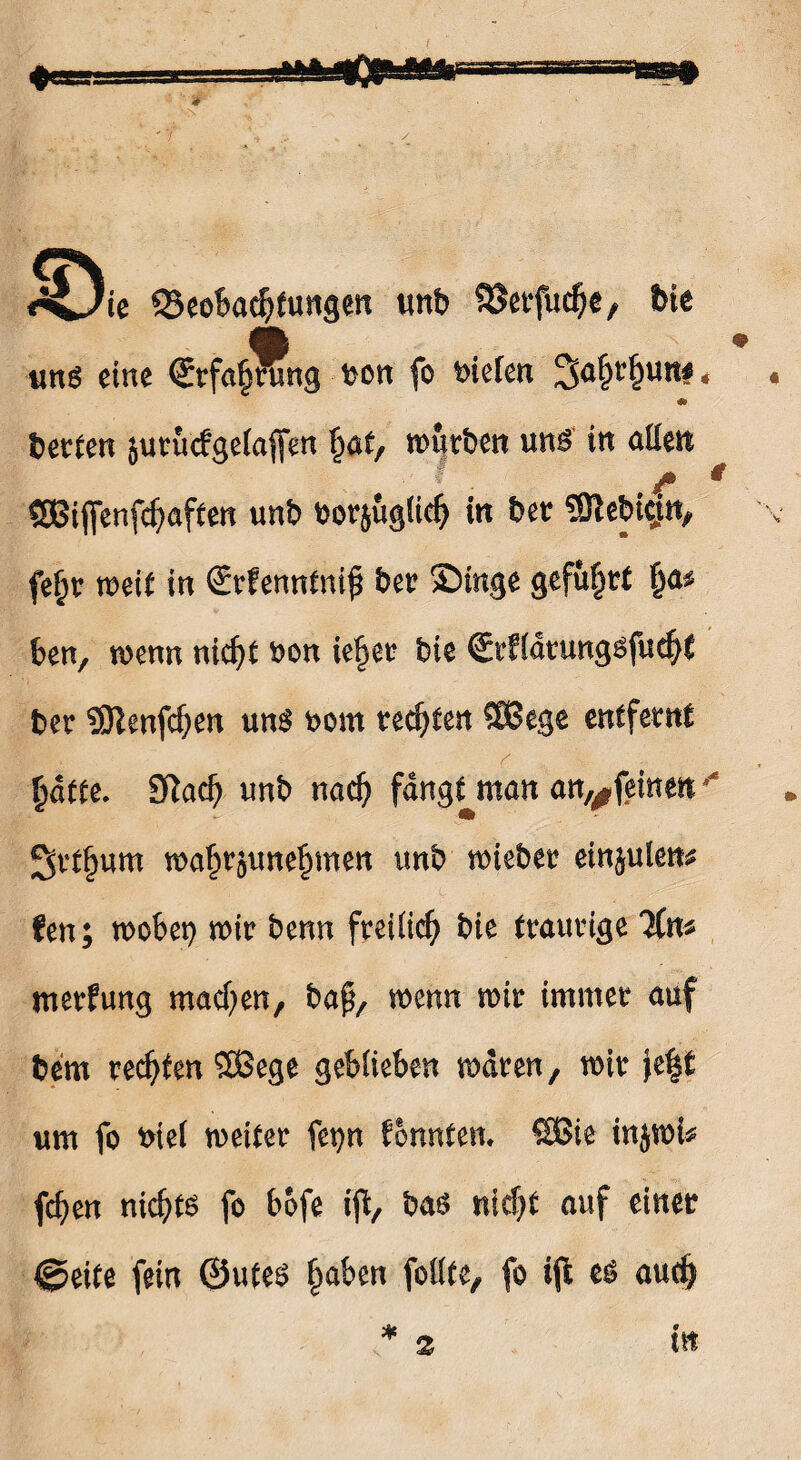 Die Beobachtungen und Versuche, die
uns eine Erfahrung von so vielen Jahrhun-
derten zurückgelassen hat, würden uns in allen
Wissenschaften und vorzüglich in der Medicin,
sehr weit in Erkenntniß der Dinge geführt ha-
ben, wenn nicht von ieher die Erklärungssucht
der Menschen uns vom rechten Wege entfernt
hätte. Nach und nach fängt man an, seinen
Irthum wahrzunehmen und wieder einzulen-
ken; wobey wir denn freilich die traurige An-
merkung machen, daß, wenn wir immer auf
dem rechten Wege geblieben wären, wir jetzt
um so viel weiter seyn könnten. Wie inzwi-
schen nichts so böse ist, das nicht auf einer
Seite sein Gutes haben sollte, so ist es auch
* 2 in